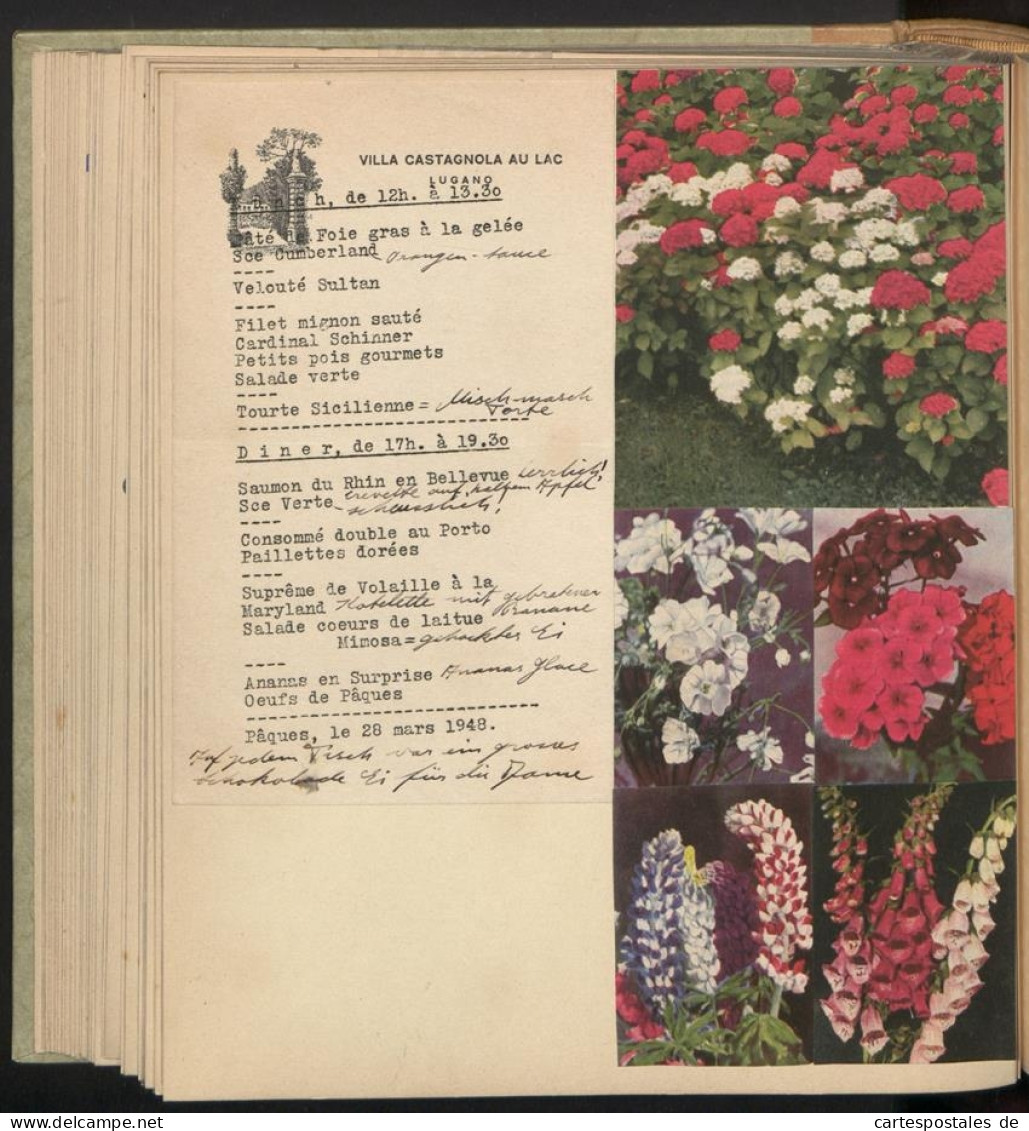 VILLA CASTAGNOLA AU LAC
LUGANO
L u n c h, de 12h. à 13.30
Pâté de Foie gras à la gelée
Sce Cumberland Orangen-sauce
----
Velouté Sultan
----
Filet mignon sauté
Cardinal Schinner
Petits pois gourmets
Salade verte
----
Tourte Sicilienne = Misch-masch
Torte
D i n e r, de 17h. à 19.30
Saumon du Rhin en Bellevue herrlich!
Sce Verte crevette auf kaltem Apfel
scheusslich!
----
Consommé double au Porto
Paillettes dorées
----
Suprême de Volaille à la
Maryland Kotelette mit gebratener
Banane
Salade coeurs de laitue
Mimosa = gehacktes Ei
----
Ananas en Surprise Ananas Glace
Oeufs de Pâques
Pâques, le 28 mars 1948.
Auf jedem Tisch war ein grosses
Schokolade Ei für die Dame
cartespostales de